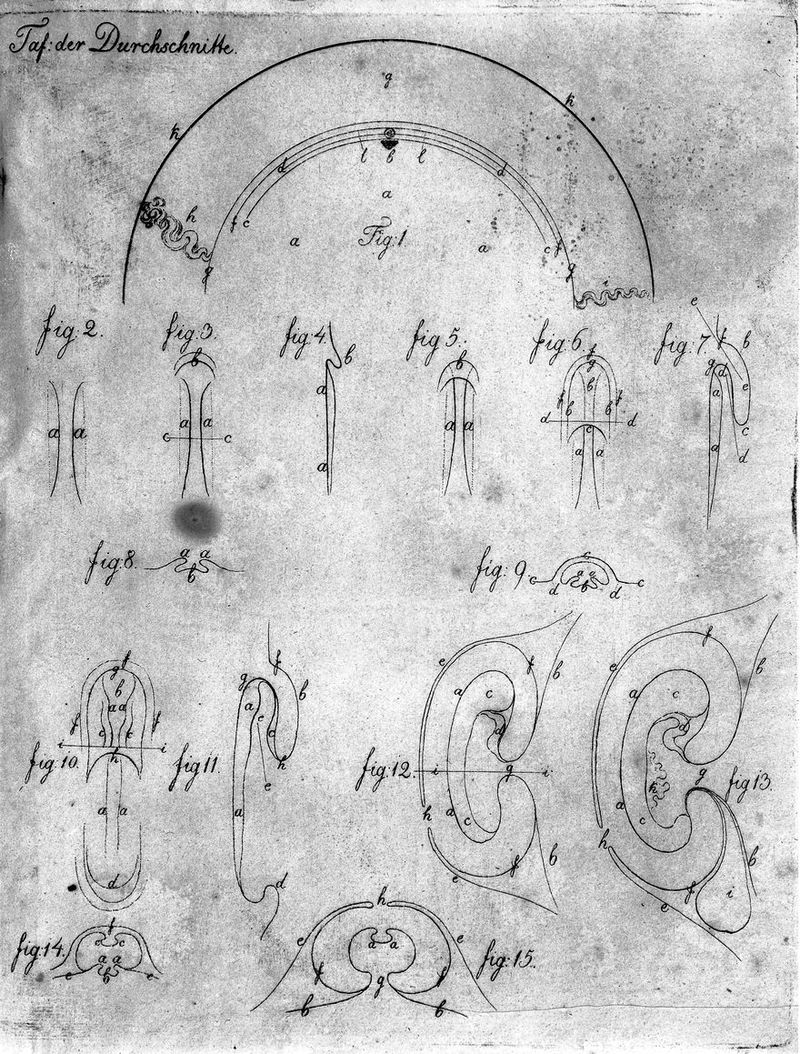 Taf: der Durchschnitte.
g
k k
l b l
d d
a
h
f c c f
a Fig:1 a
g g
i
fig:2. fig:3. fig:4. fig:5. fig:6. fig:7.
a a
b
a a
c c
b
a
a
b
a a
f
g
b
f f
b b
d d
c
a a
e
f b
g d
a e
c
a d
fig:8. a a
b
fig:9. c
c a a c
d b d
fig:10. f
g
b
f a a f
c c
i i
h
a a
d
fig:11. f
g b
a c
c
h
e
a
d
fig:12. e f b
a c
d
i g i
h a c
e f b
fig:13. f
e b
a c
d
k g
a c
h
f i b
e
fig:14. f
c c
a a
e b e
fig:15. h
e a a e
f g f
b b